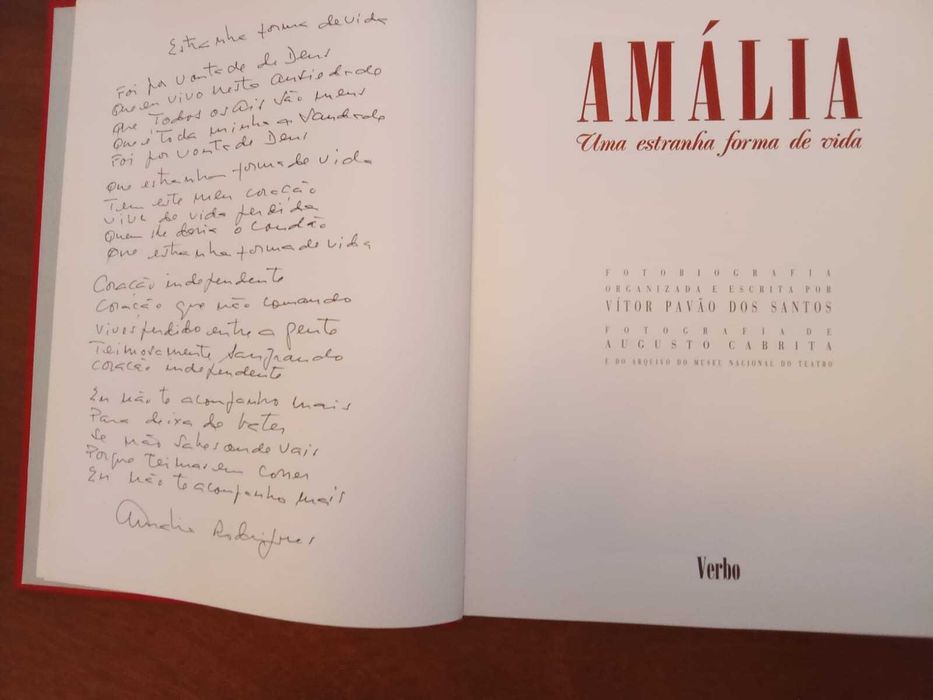 Estranha forma de vida
Foi por vontade de Deus
Que eu vivo nesta ansiedade
Que Todos os ais são meus
Que é Toda minha a saudade
Foi por vontade de Deus
Que estranha forma de vida
Tem este meu coração
Vive de vida perdida
Quem lhe daria o condão
Que estranha forma de vida
Coração independente
Coração que não comando
Vives perdido entre a gente
Teimosamente sangrando
Coração independente
Eu não te acompanho mais
Para deixa de bater
Se não sabes onde vais
Porque teimas em correr
Eu não te acompanho mais
Amália Rodrigues
AMÁLIA
Uma estranha forma de vida
FOTOBIOGRAFIA
ORGANIZADA E ESCRITA POR
VÍTOR PAVÃO DOS SANTOS
FOTOGRAFIA DE
AUGUSTO CABRITA
E DO ARQUIVO DO MUSEU NACIONAL DO TEATRO
Verbo